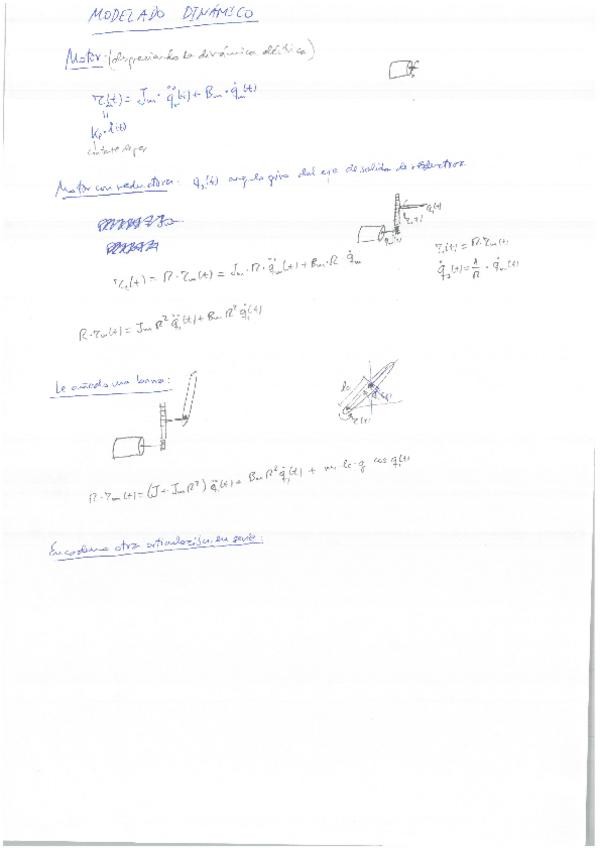 MODELADO DINÁMICO
Motor: (despreciando la dinámica eléctrica)
τₘ(t) = Jₘ · q̈ₘ(t) + Bₘ · q̇ₘ(t)
=
Kₚ · i(t)
constante de par
Motor con reductora: q₁(t) angulo giro del eje de salida de reductora
q₁(t)
τ₁(t)
τ₁(t) = R · τₘ(t)
q̇₁(t) = 1/R · q̇ₘ(t)
τ₁(t) = R · τₘ(t) = Jₘ · R · q̈ₘ(t) + Bₘ · R q̇ₘ
R · τₘ(t) = Jₘ R² q̈₁(t) + Bₘ R² q̇₁(t)
Le añado una barra:
lc
τ(t)
R · τₘ(t) = (J + Jₘ R²) q̈₁(t) + Bₘ R² q̇₁(t) + m · lc · g cos q₁(t)
Encadeno otra articulación en serie: